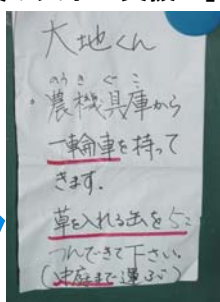 大地くん
のうきぐこ
・農機具庫から
一輪車を持って
きます.
草を入れる缶を5こ
つんできて下さい。
(中庭まで運ぶ)